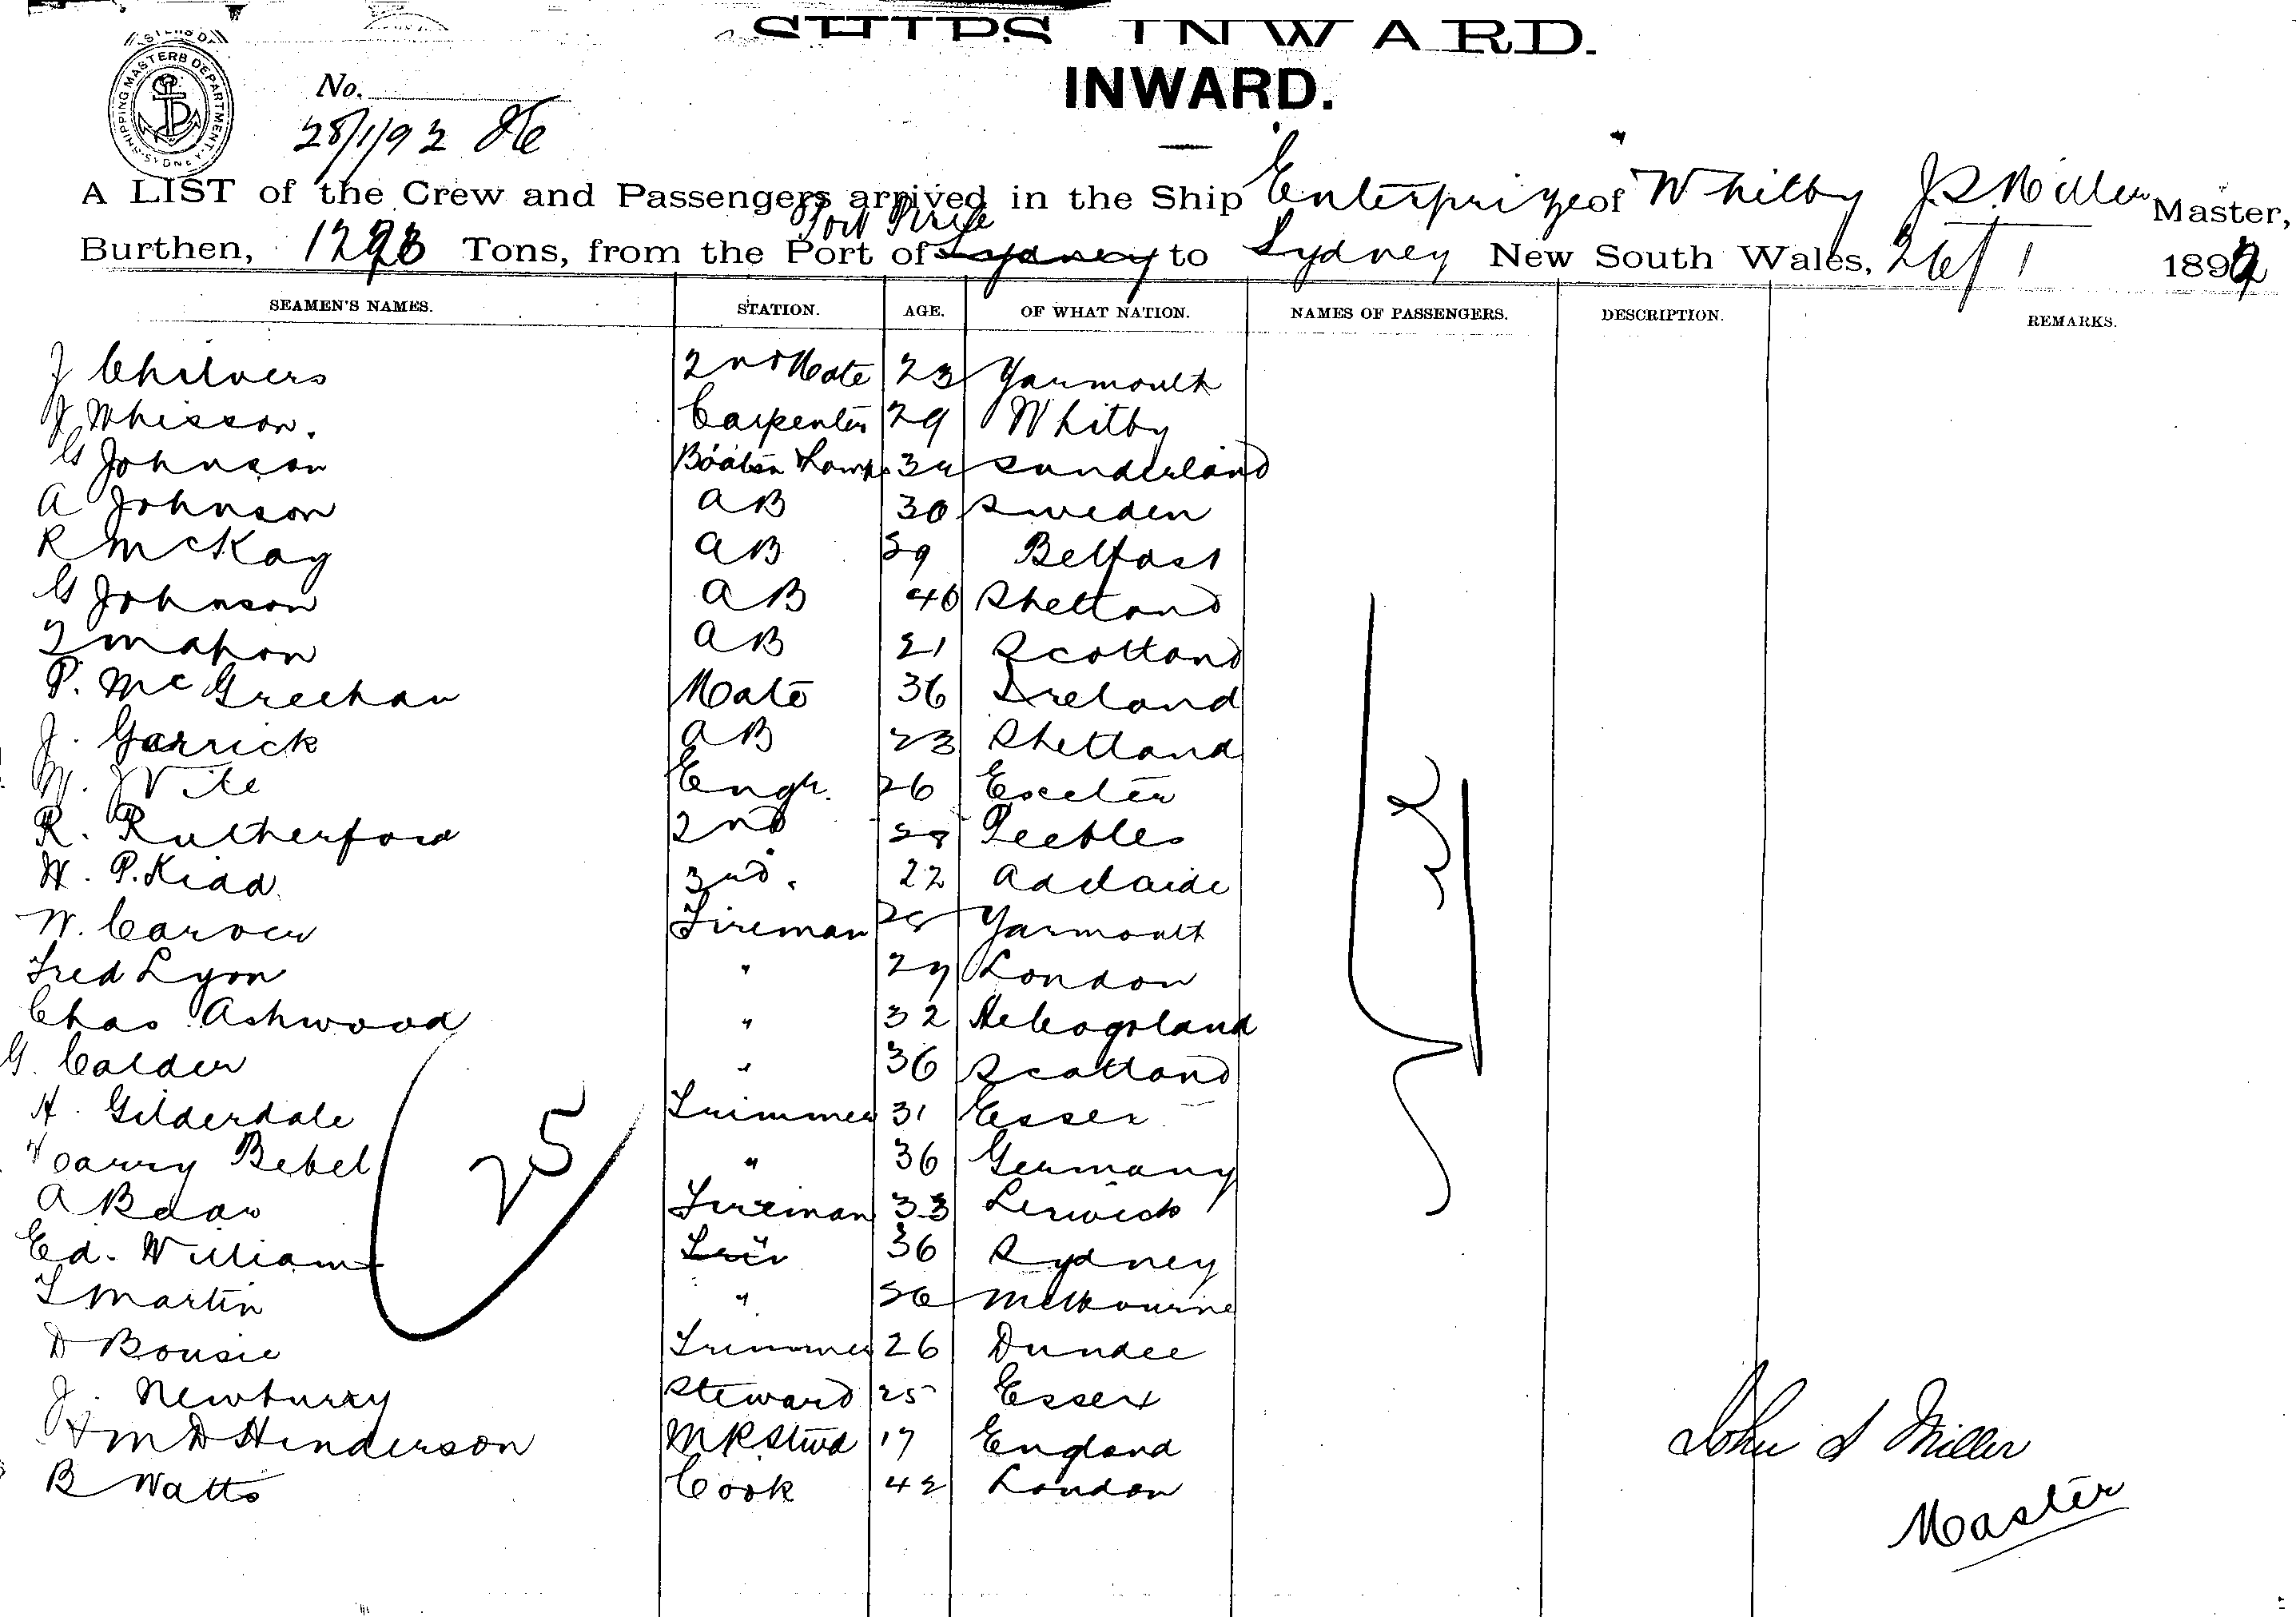 SHIPS INWARD.
INWARD.
SHIPPING MASTERS DEPARTMENT SYDNEY
No.
28/1/92
A LIST of the Crew and Passengers arrived in the Ship Enterprize of Whitby J.S. Miller Master,
Port Pirie
Burthen, Tons, from the Port of Sydney to Sydney New South Wales, 26/1 1892
SEAMEN'S NAMES. STATION. AGE. OF WHAT NATION. NAMES OF PASSENGERS. DESCRIPTION. REMARKS.
J Chilvers 2nd Mate 23 Yarmouth
J Whisson. Carpenter 29 Whitby
G Johnson Boatsn Lamps Sunderland
A Johnson AB 30 Sweden
R McKay AB 59 Belfast
G Johnson AB 40 Shetland
T Mahon AB 21 Scotland
P. McGreehan Mate 36 Ireland
J. Garrick AB 23 Shetland
W. J Vile Engr. 26 Exeter
R. Rutherford 2nd 28 Peebles
W. P. Kidd 3rd. 22 Adelaide
W. Carver Fireman 28 Yarmouth
Fred Lyon " 27 London
Chas Ashwood " 32 Heleogoland
G. Calder " 36 Scotland
H. Gilderdale Trimmer 31 Essex
Harry Bebel " 36 Germany
A Fireman 33 Lerwick
Ed. Williams " 36 Sydney
T Martin " 36 Melbourne
D Bousie Trimmer 26 Dundee
J. Newburry Steward 25 Essex
D Henderson MR Stwd 17 England
B Watts Cook 42 London
Nil
25
John S Miller
Master